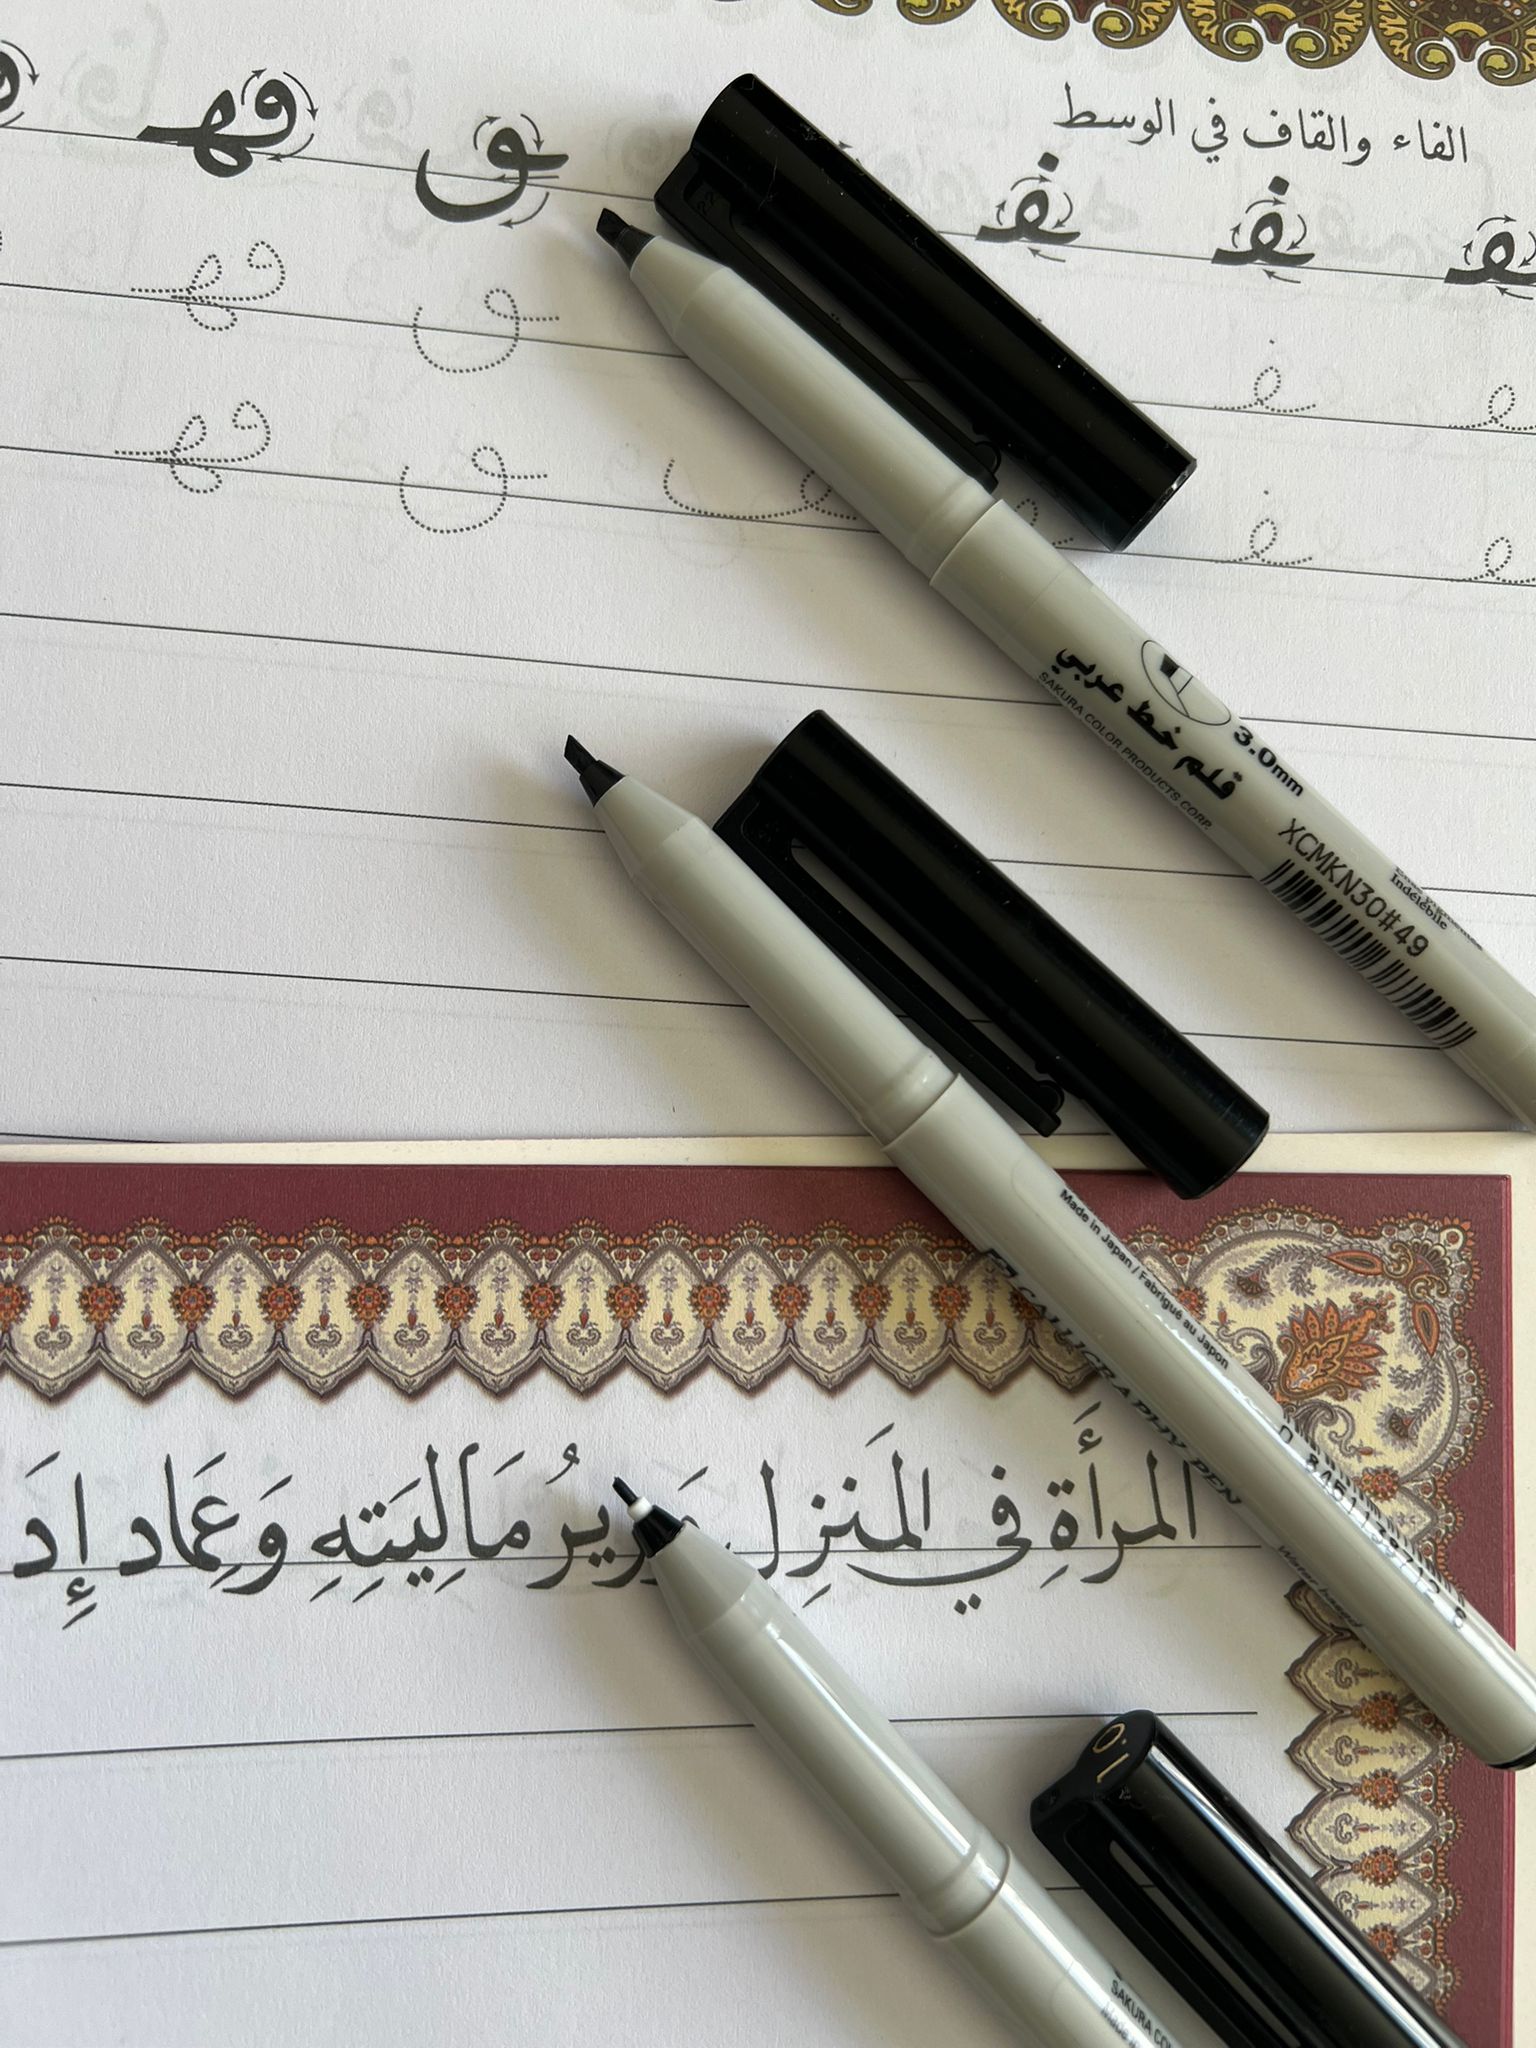 الفاء والقاف في الوسط
ـفـ ـفـ ـفـ
ـو فهـ
قلم خط عربي
SAKURA COLOR PRODUCTS CORP.
3.0mm
XCMKN30#49
Indélébile
Made in Japan / Fabriqué au Japon
CALLIGRAPHY PEN
المرأَة في المَنزِل مَالِيَتِهِ وَعِمَاد إِدَ
SAKURA
Made in